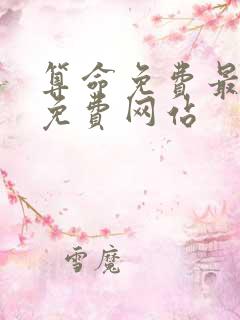 算命免费最
免费网站
雪魔